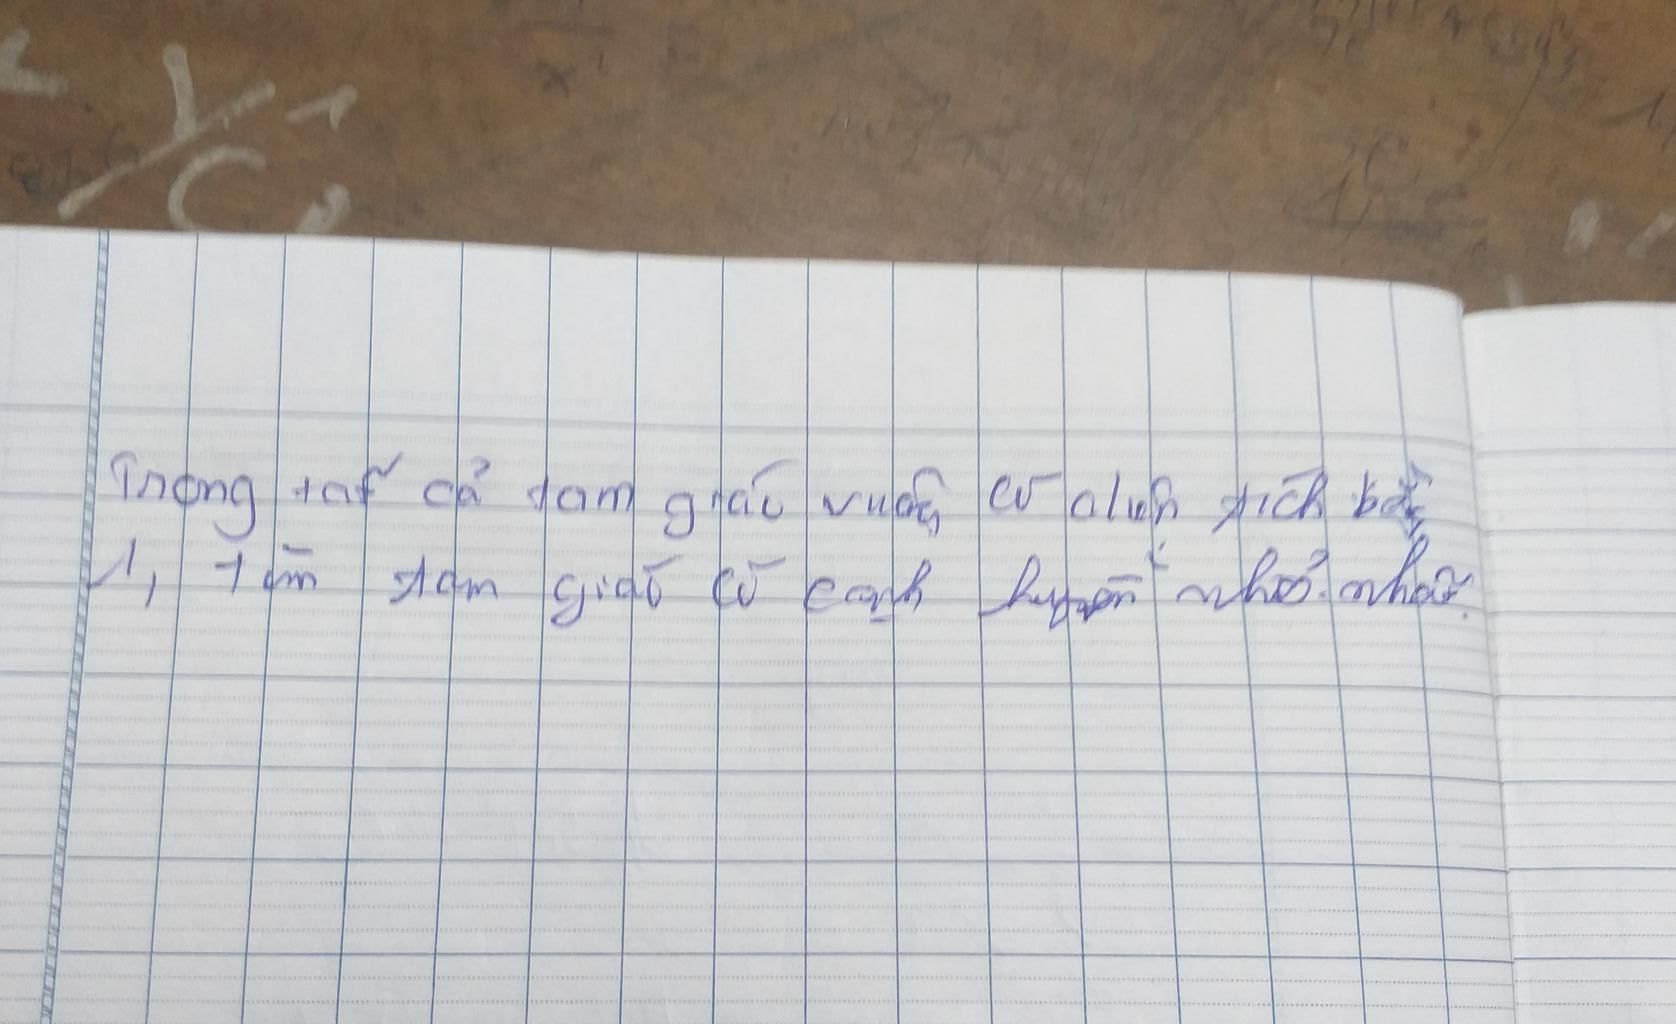 Trong tất cả tam giác vuông có diện tích bằng
1, tìm tam giác có cạnh huyền nhỏ nhất.